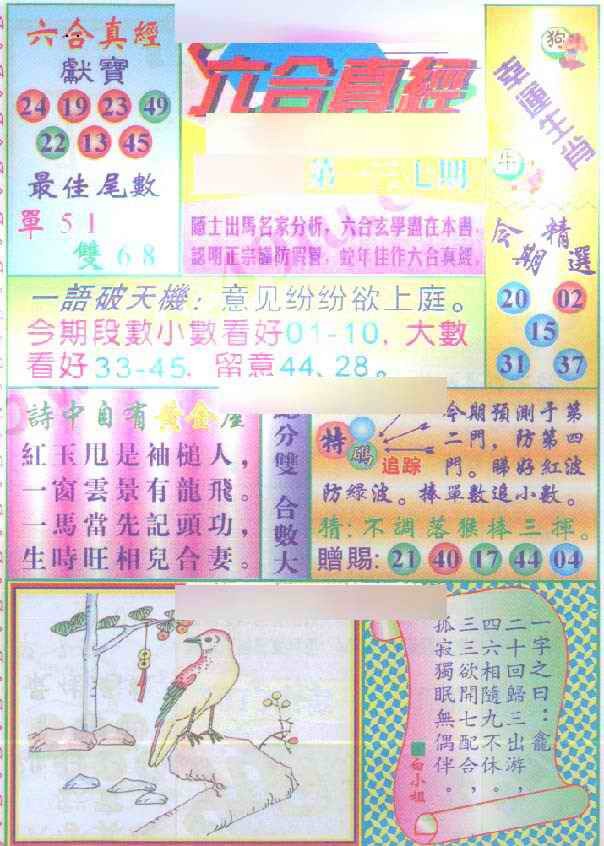 六合真經
獻寶
24 19 23 49
22 13 45
最佳尾數
單 51
雙 68
六合真經
七期
隱士出馬名家分析，六合玄學盡在本書，
認明正宗謹防假冒，蛇年佳作六合真經，
狗
幸運生肖
牛
今期精選
20 02
15
31 37
一語破天機：意见纷纷欲上庭。
今期段數小數看好01-10，大數
看好33-45，留意44、28。
詩中自有黃金屋
紅玉甩是袖槌人，
一窗雲景有龍飛。
一馬當先記頭功，
生時旺相兒合妻。
分雙 合數大
特碼
追踪
今期預測于第
二門，防第四
門。睇好紅波
防綠波。捧單數追小數。
猜：不調落猴捧三揮。
贈賜：21 40 17 44 04
一字之曰：龍
二十回歸三出游，
四六相隨九不休。
三三欲開七配合，
孤寂獨眠無偶伴。
白小姐